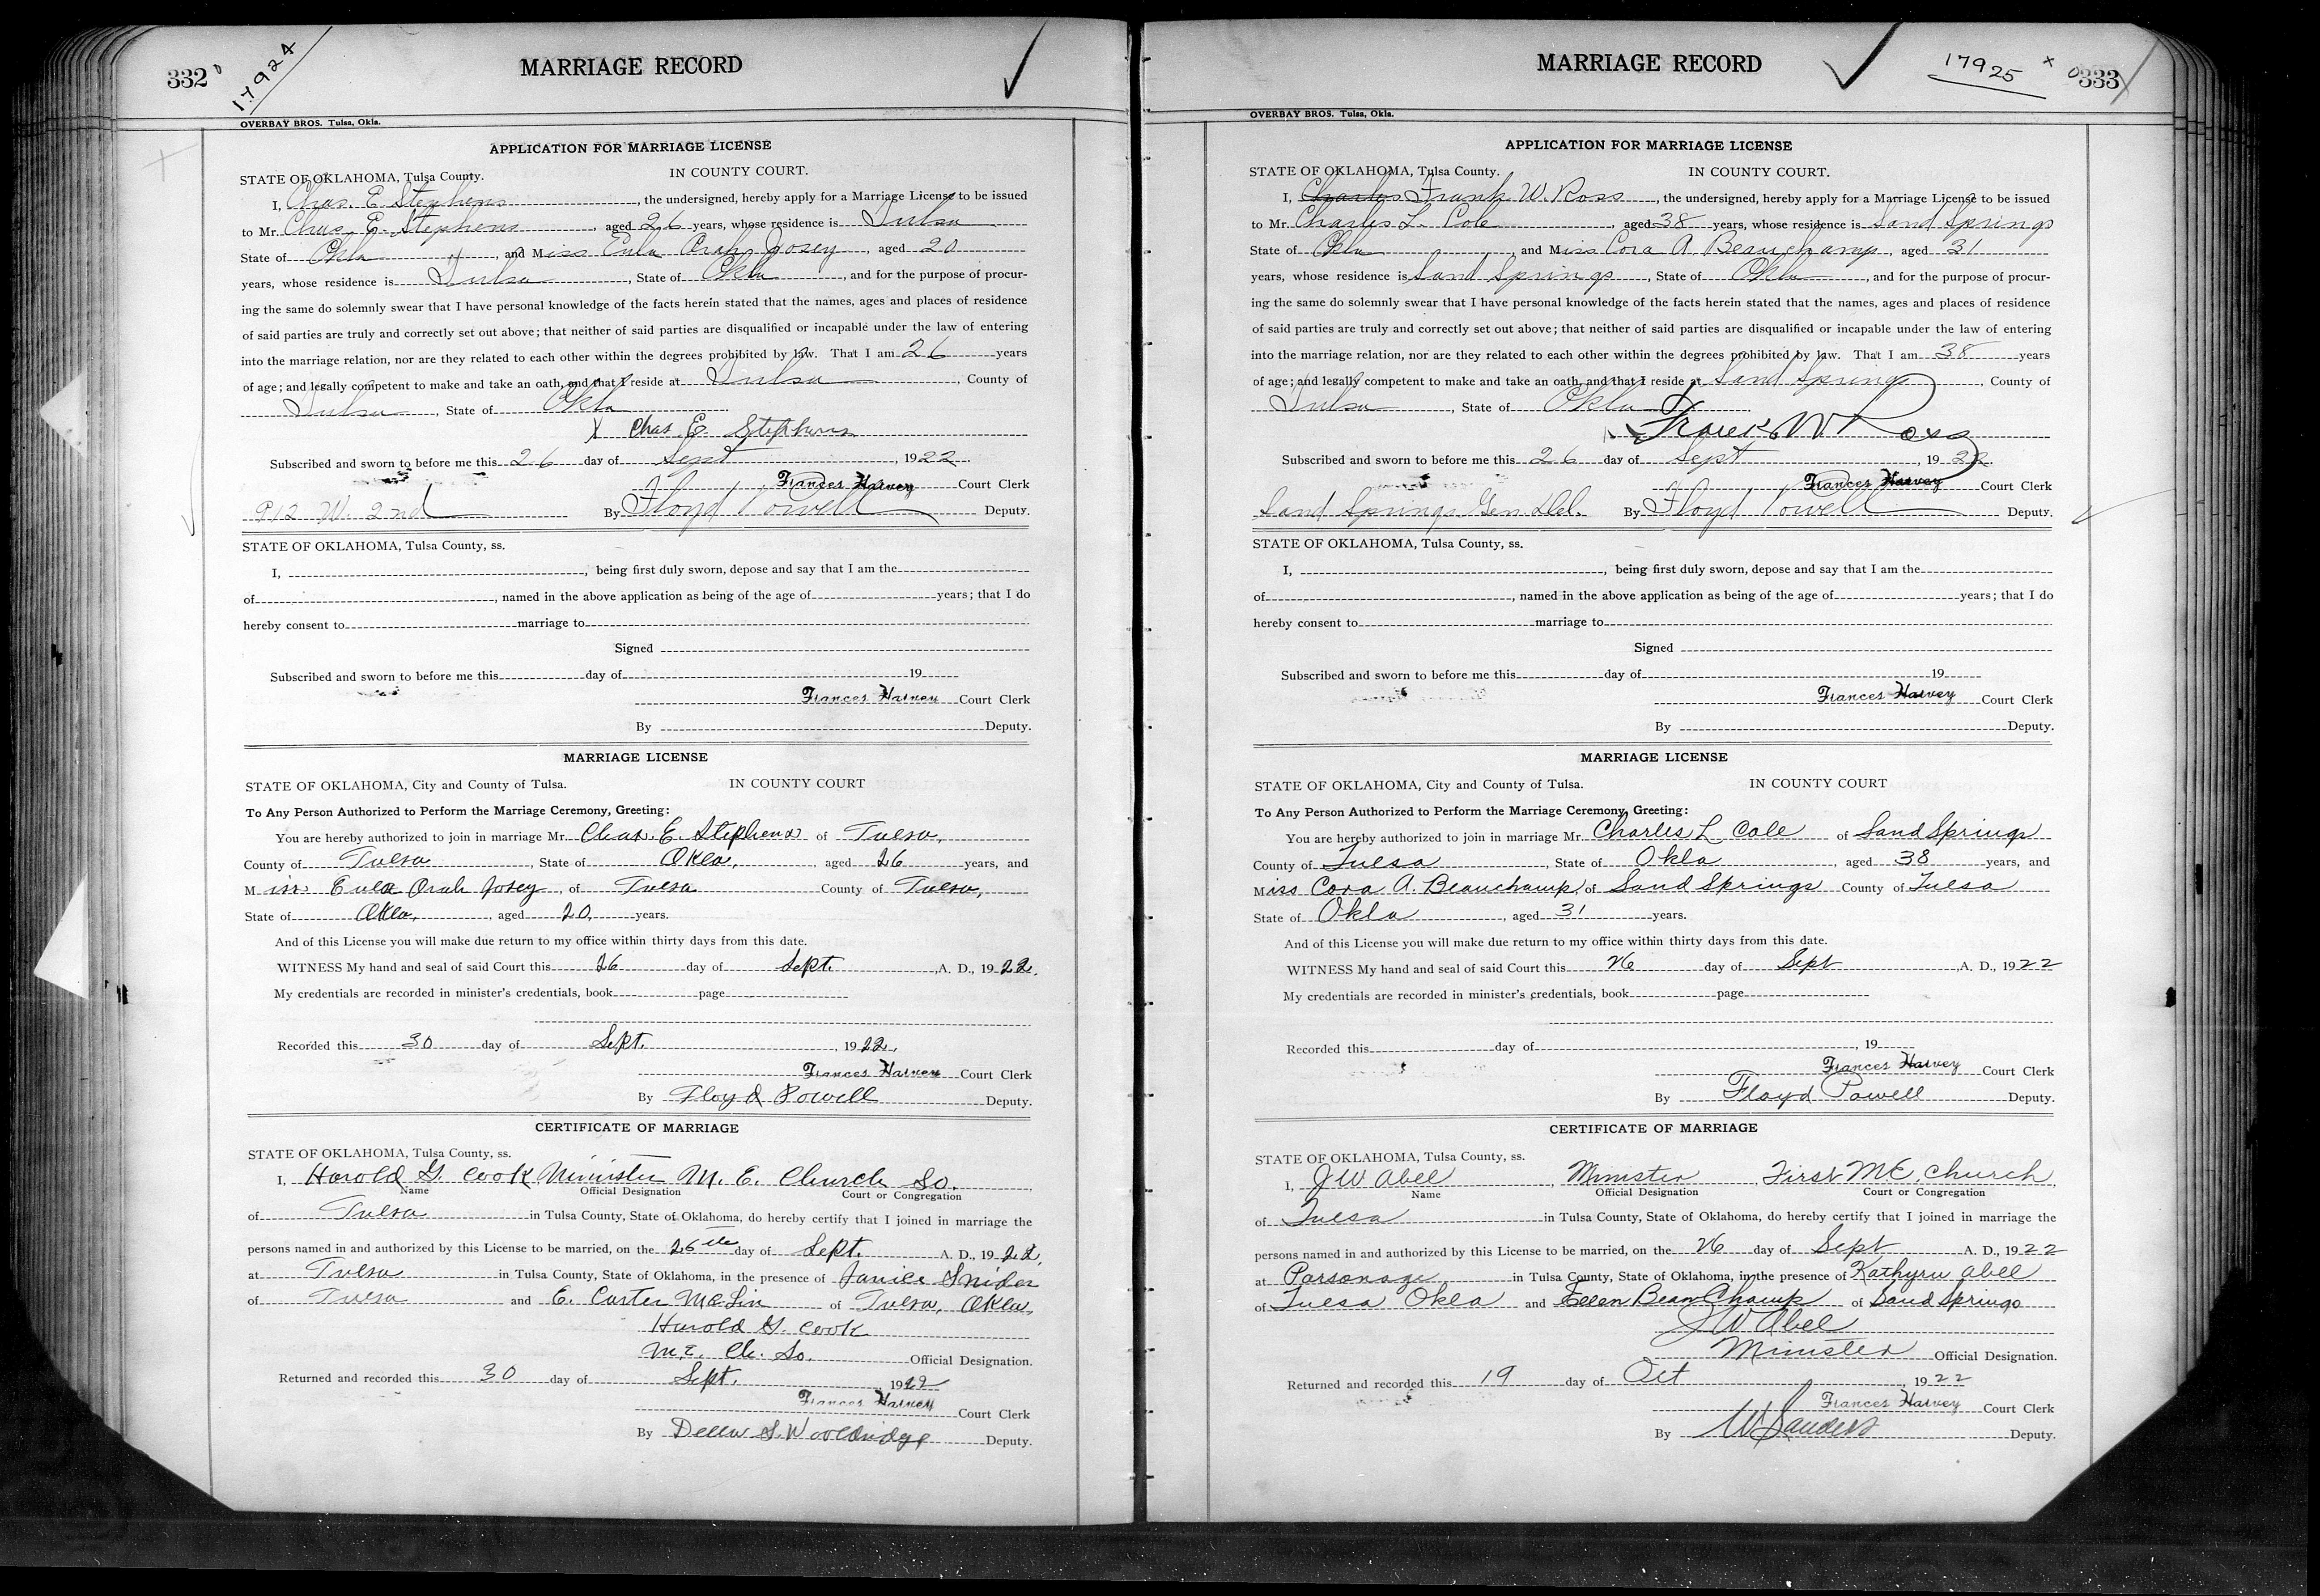 332
17924
MARRIAGE RECORD
OVERBAY BROS. Tulsa, Okla.
APPLICATION FOR MARRIAGE LICENSE
STATE OF OKLAHOMA, Tulsa County. IN COUNTY COURT.
I, Chas. E. Stephens, the undersigned, hereby apply for a Marriage License to be issued
to Mr. Chas. E. Stephens, aged 26 years, whose residence is Tulsa
State of Okla, and Miss Eula Orah Josey, aged 20
years, whose residence is Tulsa, State of Okla, and for the purpose of procur-
ing the same do solemnly swear that I have personal knowledge of the facts herein stated that the names, ages and places of residence
of said parties are truly and correctly set out above; that neither of said parties are disqualified or incapable under the law of entering
into the marriage relation, nor are they related to each other within the degrees prohibited by law. That I am 26 years
of age; and legally competent to make and take an oath, and that I reside at Tulsa, County of
Tulsa, State of Okla
X Chas. E. Stephens
Subscribed and sworn to before me this 26 day of Sept, 1922.
Frances Harvey Court Clerk
912 W. 2nd By Floyd Powell Deputy.
STATE OF OKLAHOMA, Tulsa County, ss.
I, , being first duly sworn, depose and say that I am the
of , named in the above application as being of the age of years; that I do
hereby consent to marriage to
Signed
Subscribed and sworn to before me this day of 19
Frances Harvey Court Clerk
By Deputy.
MARRIAGE LICENSE
STATE OF OKLAHOMA, City and County of Tulsa. IN COUNTY COURT
To Any Person Authorized to Perform the Marriage Ceremony, Greeting:
You are hereby authorized to join in marriage Mr. Chas. E. Stephens of Tulsa,
County of Tulsa, State of Okla, aged 26 years, and
Miss Eula Orah Josey, of Tulsa County of Tulsa,
State of Okla, aged 20, years.
And of this License you will make due return to my office within thirty days from this date.
WITNESS My hand and seal of said Court this 26 day of Sept. A. D., 1922.
My credentials are recorded in minister's credentials, book page
Recorded this 30 day of Sept., 1922,
Frances Harvey Court Clerk
By Floyd Powell Deputy.
CERTIFICATE OF MARRIAGE
STATE OF OKLAHOMA, Tulsa County, ss.
I, Harold G. Cook Minister M. E. Church So.
Name Official Designation Court or Congregation
of Tulsa in Tulsa County, State of Oklahoma, do hereby certify that I joined in marriage the
persons named in and authorized by this License to be married, on the 26th day of Sept. A. D., 1922,
at Tulsa in Tulsa County, State of Oklahoma, in the presence of Janice Snider
of Tulsa and E. Carter McLin of Tulsa, Okla,
Harold G. Cook
M.E. Ch. So. Official Designation.
Returned and recorded this 30 day of Sept., 1922
Frances Harvey Court Clerk
By Della S. Wooldridge Deputy.
MARRIAGE RECORD
17925 x
333
OVERBAY BROS. Tulsa, Okla.
APPLICATION FOR MARRIAGE LICENSE
STATE OF OKLAHOMA, Tulsa County. IN COUNTY COURT.
I, Charles Frank W. Ross, the undersigned, hereby apply for a Marriage License to be issued
to Mr. Charles L. Cole, aged 38 years, whose residence is Sand Springs
State of Okla, and Miss Cora A. Beauchamp, aged 31
years, whose residence is Sand Springs, State of Okla, and for the purpose of procur-
ing the same do solemnly swear that I have personal knowledge of the facts herein stated that the names, ages and places of residence
of said parties are truly and correctly set out above; that neither of said parties are disqualified or incapable under the law of entering
into the marriage relation, nor are they related to each other within the degrees prohibited by law. That I am 38 years
of age; and legally competent to make and take an oath, and that I reside at Sand Springs, County of
Tulsa, State of Okla
X Frank W Ross
Subscribed and sworn to before me this 26 day of Sept, 1922.
Frances Harvey Court Clerk
Sand Springs Gen Del. By Floyd Powell Deputy.
STATE OF OKLAHOMA, Tulsa County, ss.
I, , being first duly sworn, depose and say that I am the
of , named in the above application as being of the age of years; that I do
hereby consent to marriage to
Signed
Subscribed and sworn to before me this day of 19
Frances Harvey Court Clerk
By Deputy.
MARRIAGE LICENSE
STATE OF OKLAHOMA, City and County of Tulsa. IN COUNTY COURT
To Any Person Authorized to Perform the Marriage Ceremony, Greeting:
You are hereby authorized to join in marriage Mr. Charles L Cole of Sand Springs
County of Tulsa, State of Okla, aged 38 years, and
Miss Cora A. Beauchamp, of Sand Springs County of Tulsa
State of Okla, aged 31 years.
And of this License you will make due return to my office within thirty days from this date.
WITNESS My hand and seal of said Court this 26 day of Sept A. D., 1922
My credentials are recorded in minister's credentials, book page
Recorded this day of , 19
Frances Harvey Court Clerk
By Floyd Powell Deputy.
CERTIFICATE OF MARRIAGE
STATE OF OKLAHOMA, Tulsa County, ss.
I, J W Abel, Minister First M.E. Church,
Name Official Designation Court or Congregation
of Tulsa in Tulsa County, State of Oklahoma, do hereby certify that I joined in marriage the
persons named in and authorized by this License to be married, on the 26 day of Sept A. D., 1922
at Parsonage in Tulsa County, State of Oklahoma, in the presence of Kathyrn Abel
of Tulsa Okla and Ellen Beau Champ of Sand Springs
J W Abel
Minister Official Designation.
Returned and recorded this 19 day of Oct, 1922
Frances Harvey Court Clerk
By W Sanders Deputy.